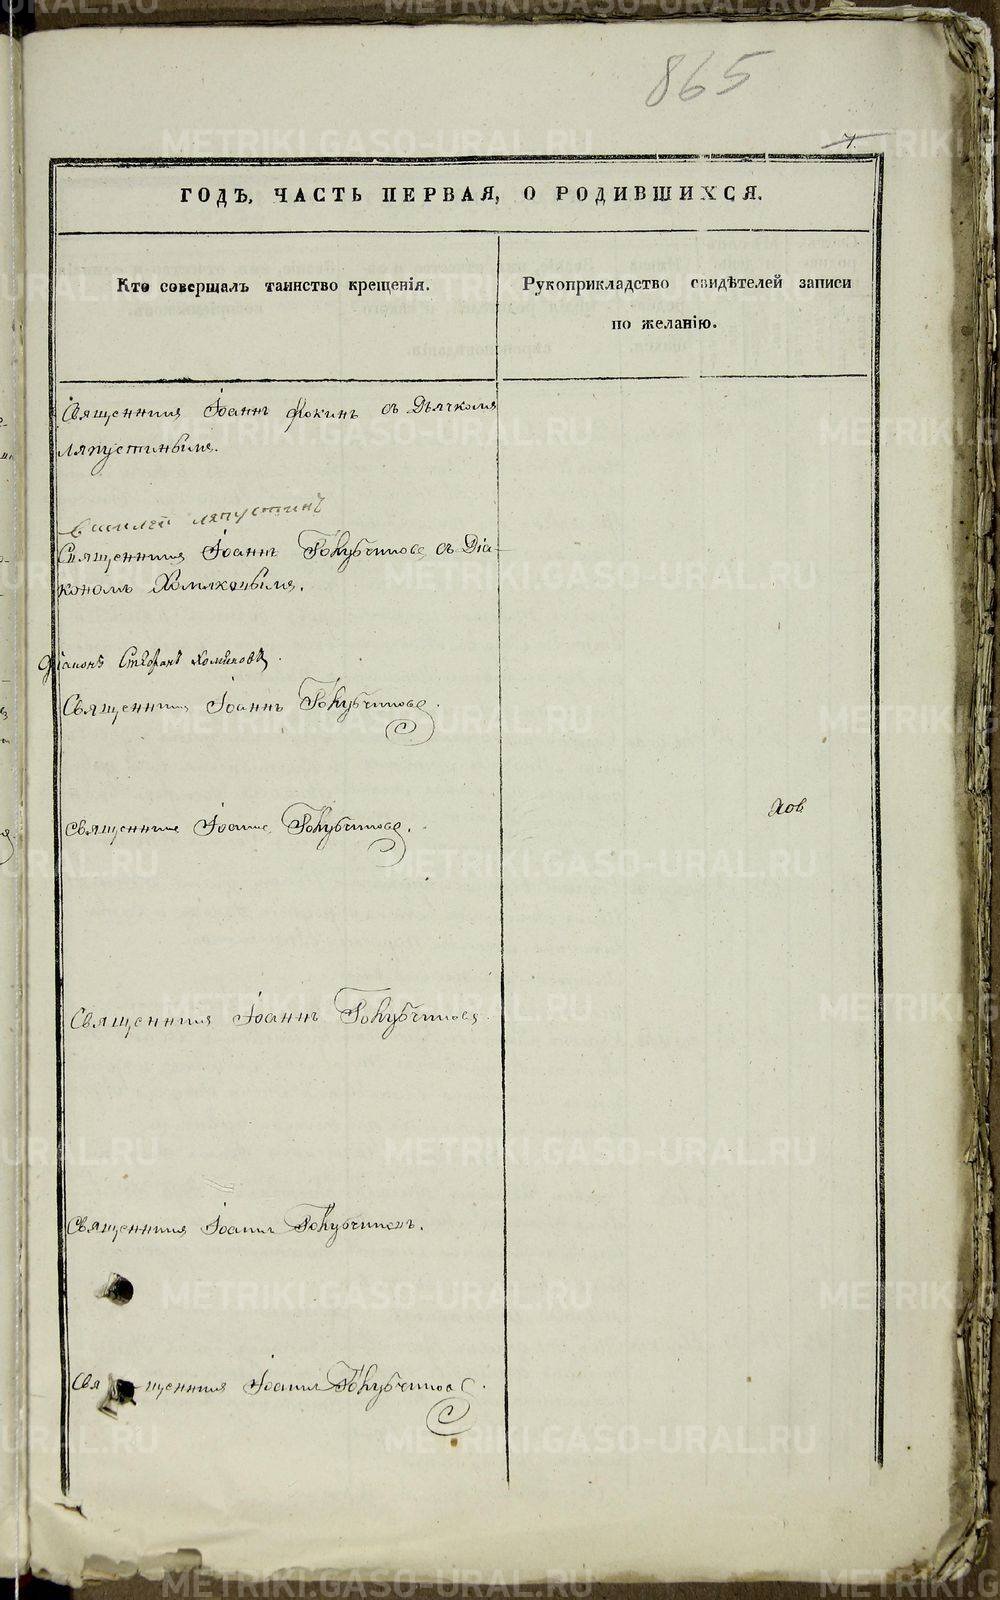 865
7.
ГОДЪ, ЧАСТЬ ПЕРВАЯ, О РОДИВШИХСЯ.
Кто совершалъ таинство крещенія.
Рукоприкладство свидѣтелей записи
по желанію.
Священникъ Іоаннъ Фокинъ съ Дьячкомъ
Ляпустинымъ.
Василей Ляпустинъ
Священникъ Іоаннъ Голубчиковъ съ Діа-
кономъ Хомяковымъ.
Діаконъ Стефанъ Хомяковъ.
Священникъ Іоаннъ Голубчиковъ.
Священникъ Іоаннъ Голубчиковъ.
ков
Священникъ Іоаннъ Голубчиковъ.
Священникъ Іоаннъ Голубчиковъ.
Священникъ Іоаннъ Голубчиковъ.
METRIKI.GASO-URAL.RU